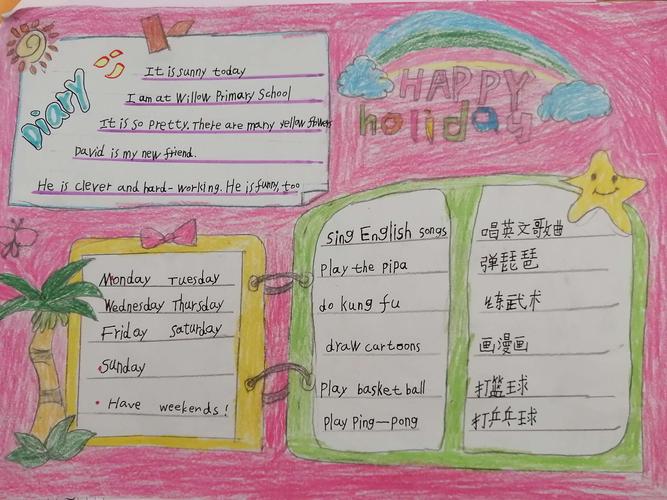 Diary
It is sunny today
I am at Willow Primary School
It is so pretty. There are many yellow flowers
David is my new friend.
He is clever and hard-working. He is funny, too
HAPPY
holiday
Monday Tuesday
Wednesday Thursday
Friday Saturday
Sunday
Have weekends!
sing English songs
play the pipa
do kung fu
draw cartoons
play basketball
play ping-pong
唱英文歌曲
弹琵琶
练武术
画漫画
打篮球
打乒乓球